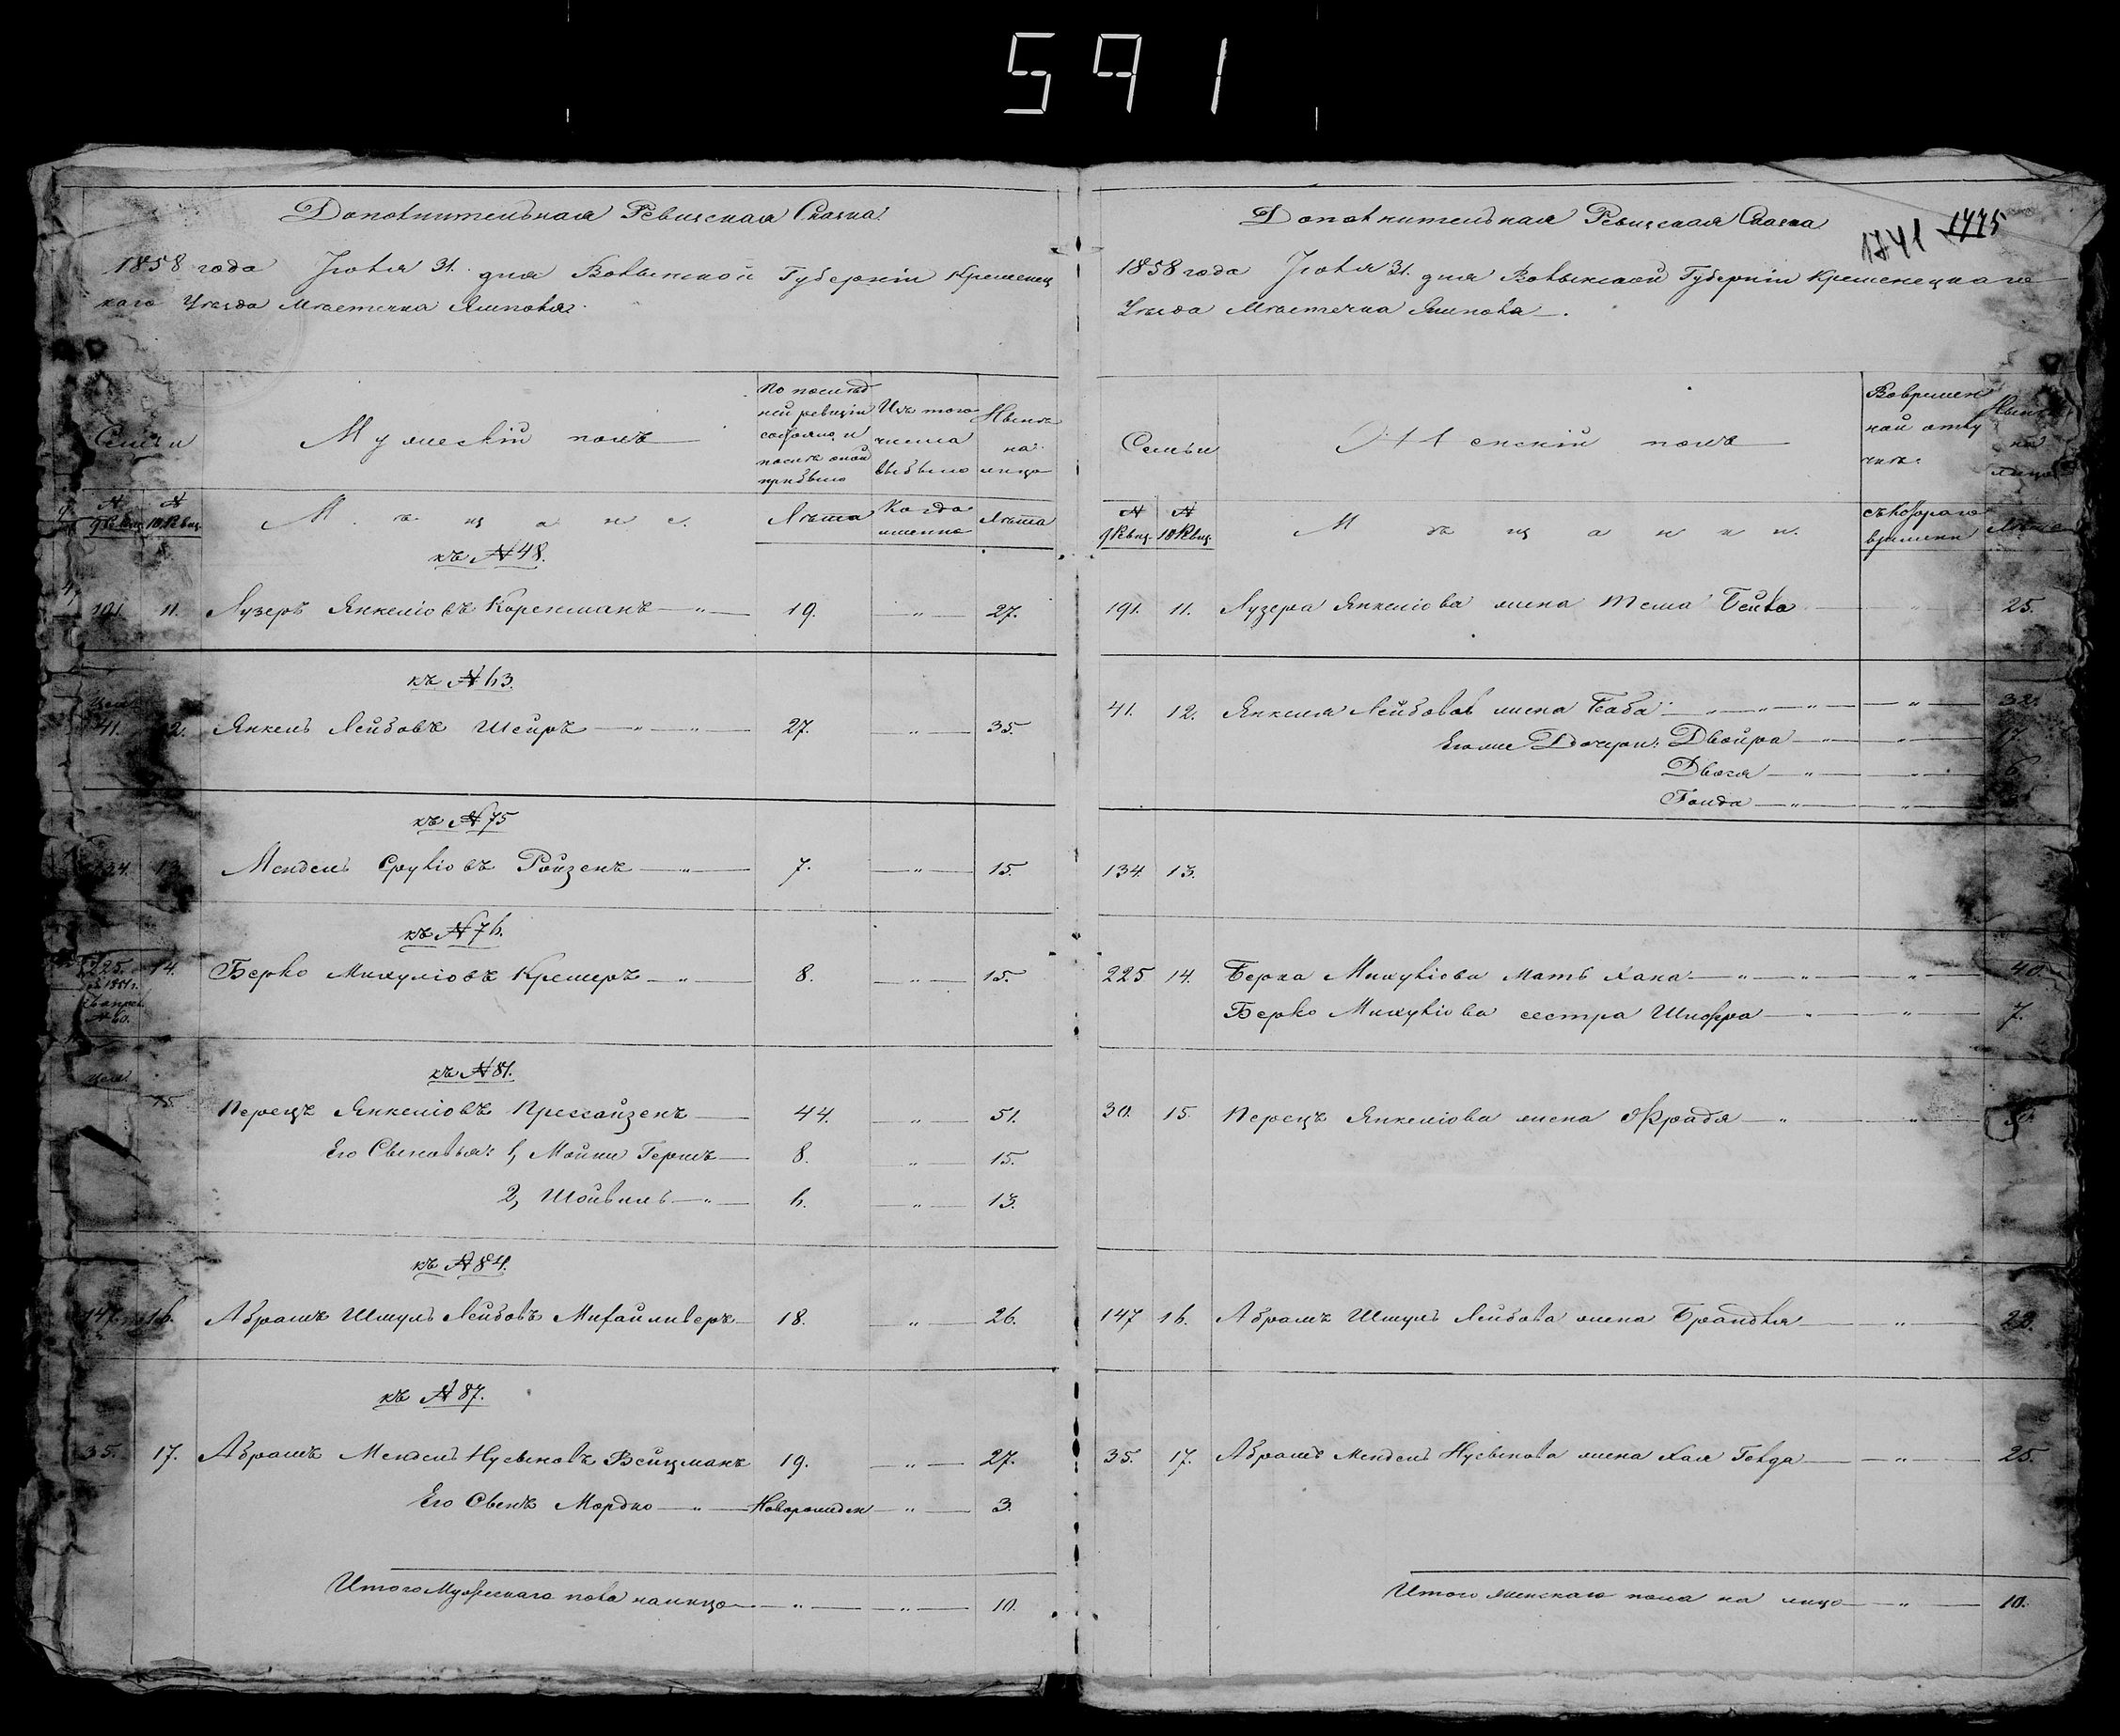 591
Дополнительная Ревизская Сказка
1858 года Іюля 31. дня Волынской Губерніи Кременец
каго Уѣзда Мѣстечка Ямполя
Семьи
Мужескій полъ
По послѣд
ней ревизіи
состояло и
послѣ оной
прибыло
Изъ того
числа
выбыло
Нынѣ
на
лицо
№ 9 Ревиз. № 10 Ревиз.
М ѣ щ а н е.
Лѣта
Когда
именно
Лѣта
къ № 48.
191. 11. Лузеръ Янкеліовъ Коренманъ 19. 27.
къ № 63.
41. 12. Янкель Лейбовъ Шейръ 27. 35.
къ № 75
134. 13. Мендель Сруліовъ Ройзенъ 7. 15.
къ № 76.
225. 14. Берко Михуліовъ Кремеръ 8. 15.
№ 60.
къ № 81.
15. Перецъ Янкеліовъ Пресайзенъ 44. 51.
Его Сыновья: 1, Мойши Гершъ 8. 15.
2, Шойвиль 6. 13.
къ № 84.
147. 16. Абрамъ Шмуль Лейбовъ 18. 26.
къ № 87.
35. 17. Абрамъ Мендель Нусыновъ Вейцманъ 19. 27.
Его Сынъ Мордко Новорожден 3.
Итого Мужескаго пола налицо 10.
Дополнительная Ревизская Сказка
1741 1775
1858 года Іюля 31. дня Волынской Губерніи Кременецкаго
Уѣзда Мѣстечка Ямполя.
Семьи
Женскій полъ
Вовремен
ной отлу
чкѣ.
Нынѣ
на
лицо
№ 9 Ревиз. № 10 Ревиз.
М ѣ щ а н к и.
съ котораго
времени
Лѣта
191. 11. Лузера Янкеліова жена Теша Бейла 25.
41. 12. Янкеля Лейбова жена Баба 32.
Его же Дочери: Двойра 17.
Двося 6
Гольда
134. 13.
225 14. Берка Михуліова мать Хана 40
Берко Михуліова сестра Шифра 7.
30. 15. Перецъ Янкеліова жена Фрадя
147 16. Абрамъ Шмуль Лейбова жена Брандля 23.
35. 17. Абрамъ Мендель Нусынова жена Хая Голда 25.
Итого женскаго пола на лицо 10.